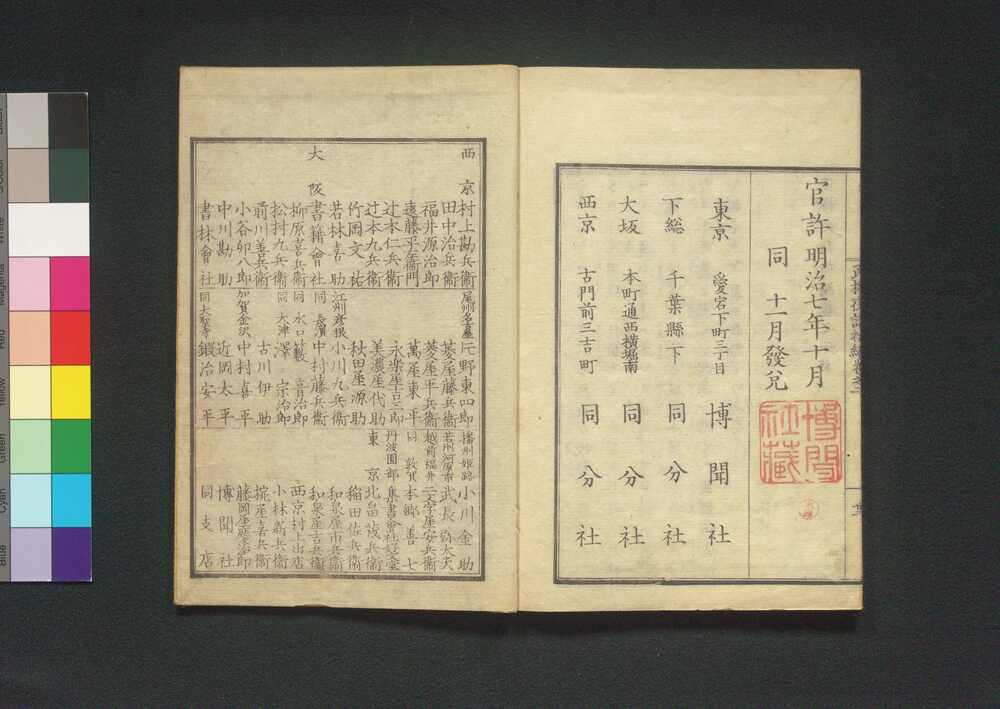 官許明治七年十月
同 十一月發兌
博聞社藏
東京 愛宕下町三丁目 博聞社
下総 千葉縣下 同分社
大坂 本町通西横堀南 同分社
西京 古門前三吉町 同分社
西京 村上勘兵衞
田中治兵衞
福井源治郎
遠藤平左衞門
辻本仁兵衞
辻本九兵衞
竹岡文祐
若林喜助
大阪 書籍會社
柳原喜兵衞
松村九兵衞
前川善兵衞
小谷卯八郎
中川勘助
書林會社
尾州名古屋 元野東四郎
菱屋藤兵衞
菱屋平兵衞
萬屋東平
永樂屋
美濃屋代助
秋田屋源助
江州彦根 小川九兵衞
同 長濱 中村藤兵衞
同 水口 音治郎
同 大津 澤 宗治郎
古川伊助
加賀金沢 中村喜平
近岡太平
同 大聖寺 鍛冶安平
播州姫路 小川金助
武長弥太夫
越前福井 安兵衞
同 敦賀 本郷善七
丹波園部 集書會社
東京 北畠茂兵衞
稲田佐兵衞
和泉屋市兵衞
和泉屋吉兵衞
西京村上出店
小林
椀屋喜兵衞
藤岡屋慶治郎
博聞社
同支店